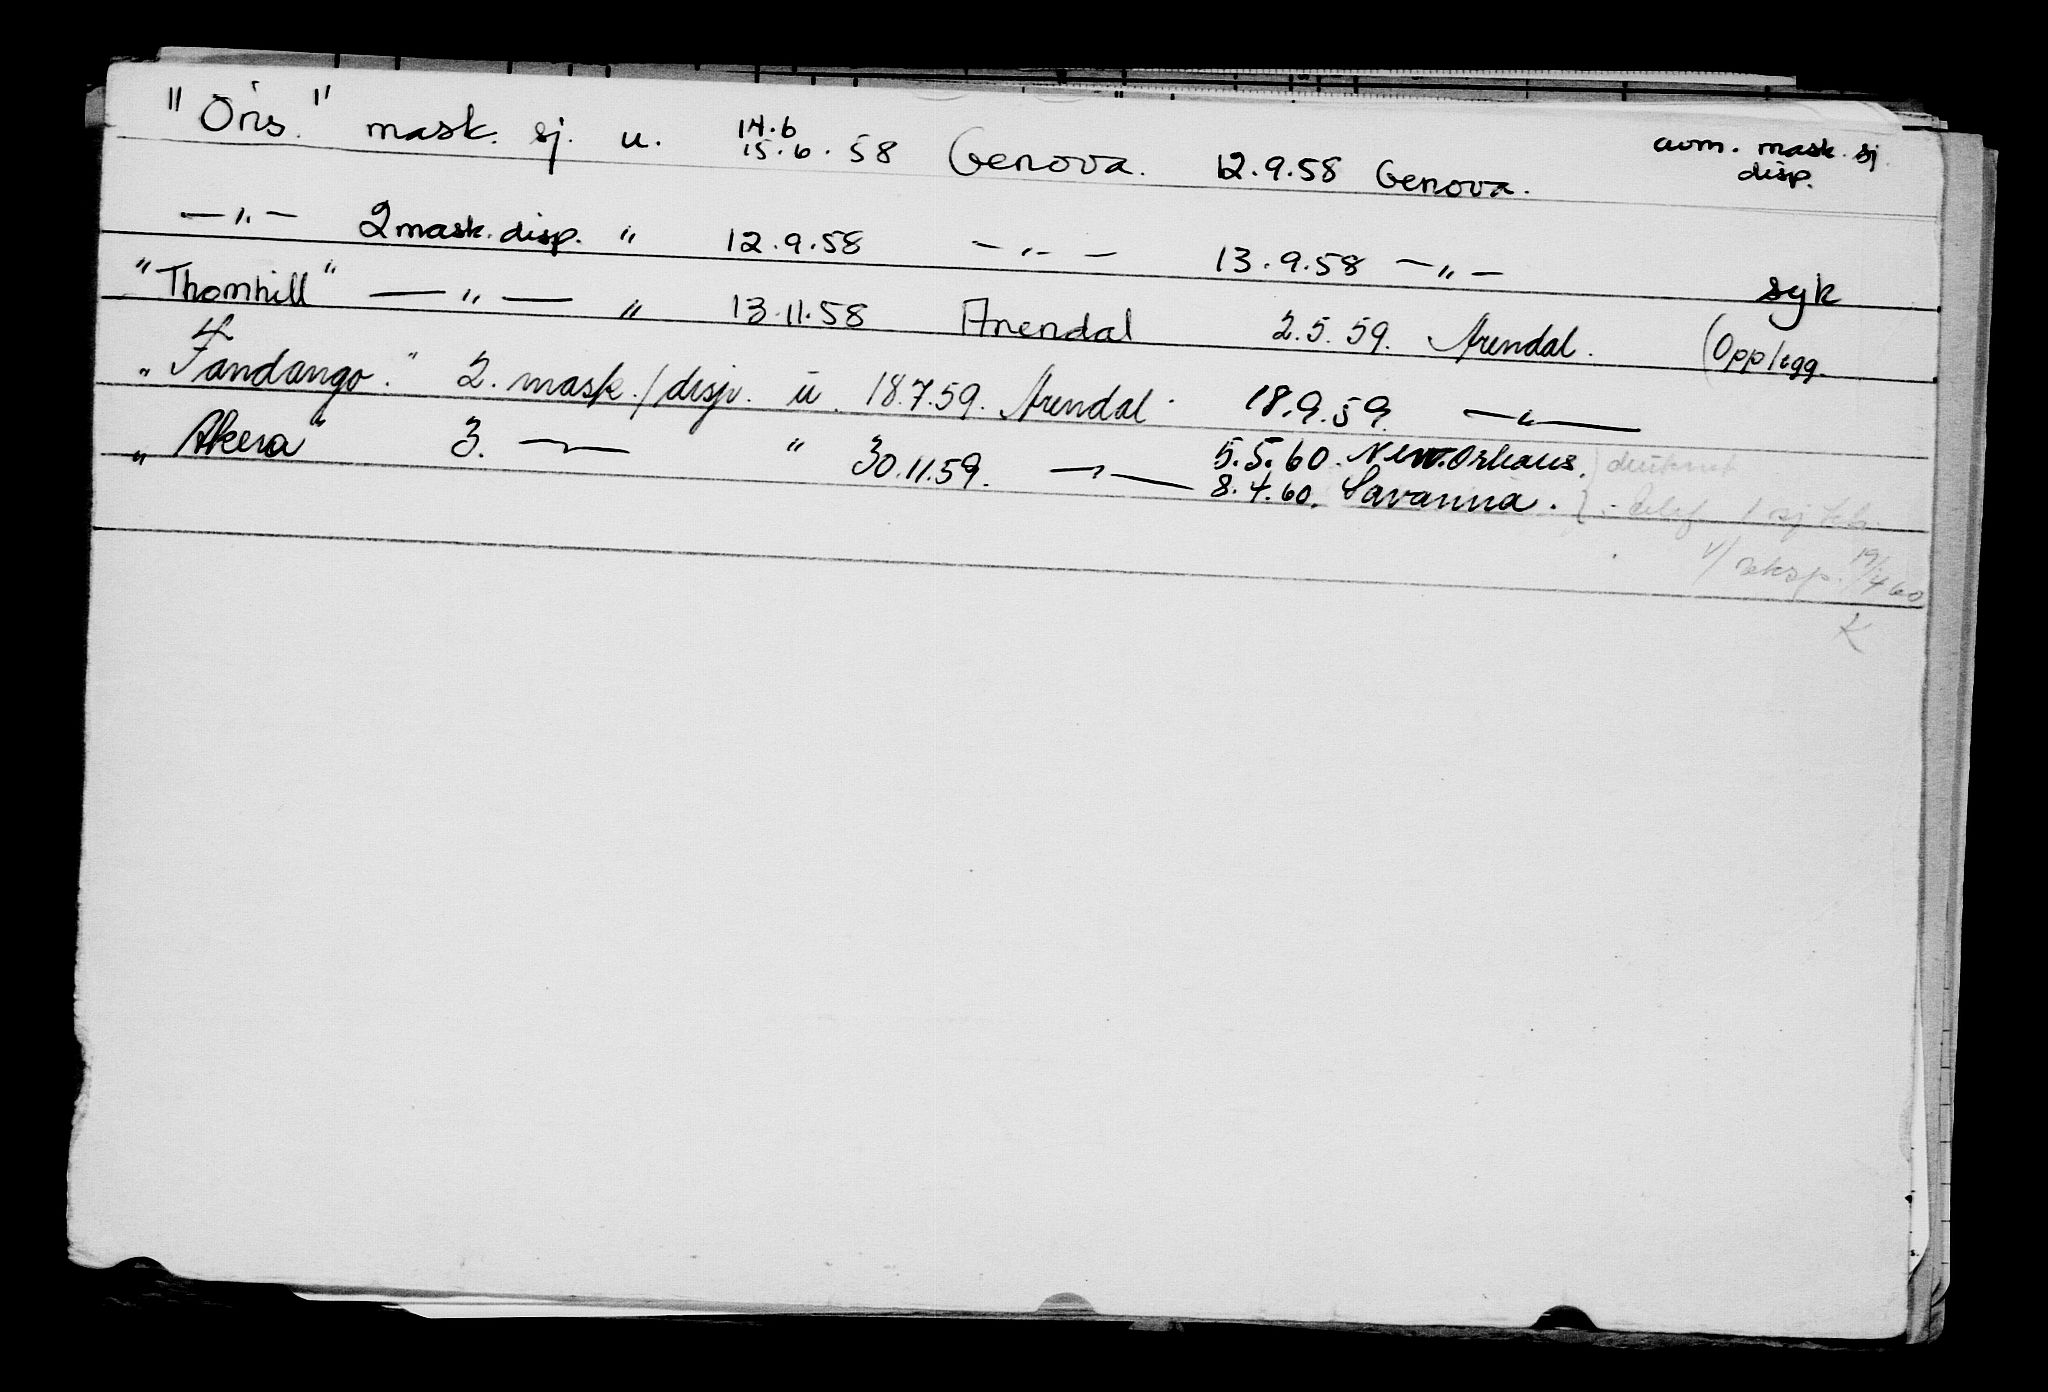 "Oris." mask. sj. u. 14.6 15.6.58 Genova. 12.9.58 Genova. avm. mask. sj. disp.
— " — 2 mask. disp. " 12.9.58 — " — 13.9.58 — " — syk
"Thornhill" — " — " 13.11.58 Arendal 2.5.59. Arendal. (Opplegg.
"Fandango." 2. mask./disp. u. 18.7.59. Arendal. 18.9.59. — " —
"Akera" 3. — " — " 30.11.59. — " — 5.5.60. New. Orleans.
8.4.60. Savanna.
1 sj
v/ 19/4 60
K